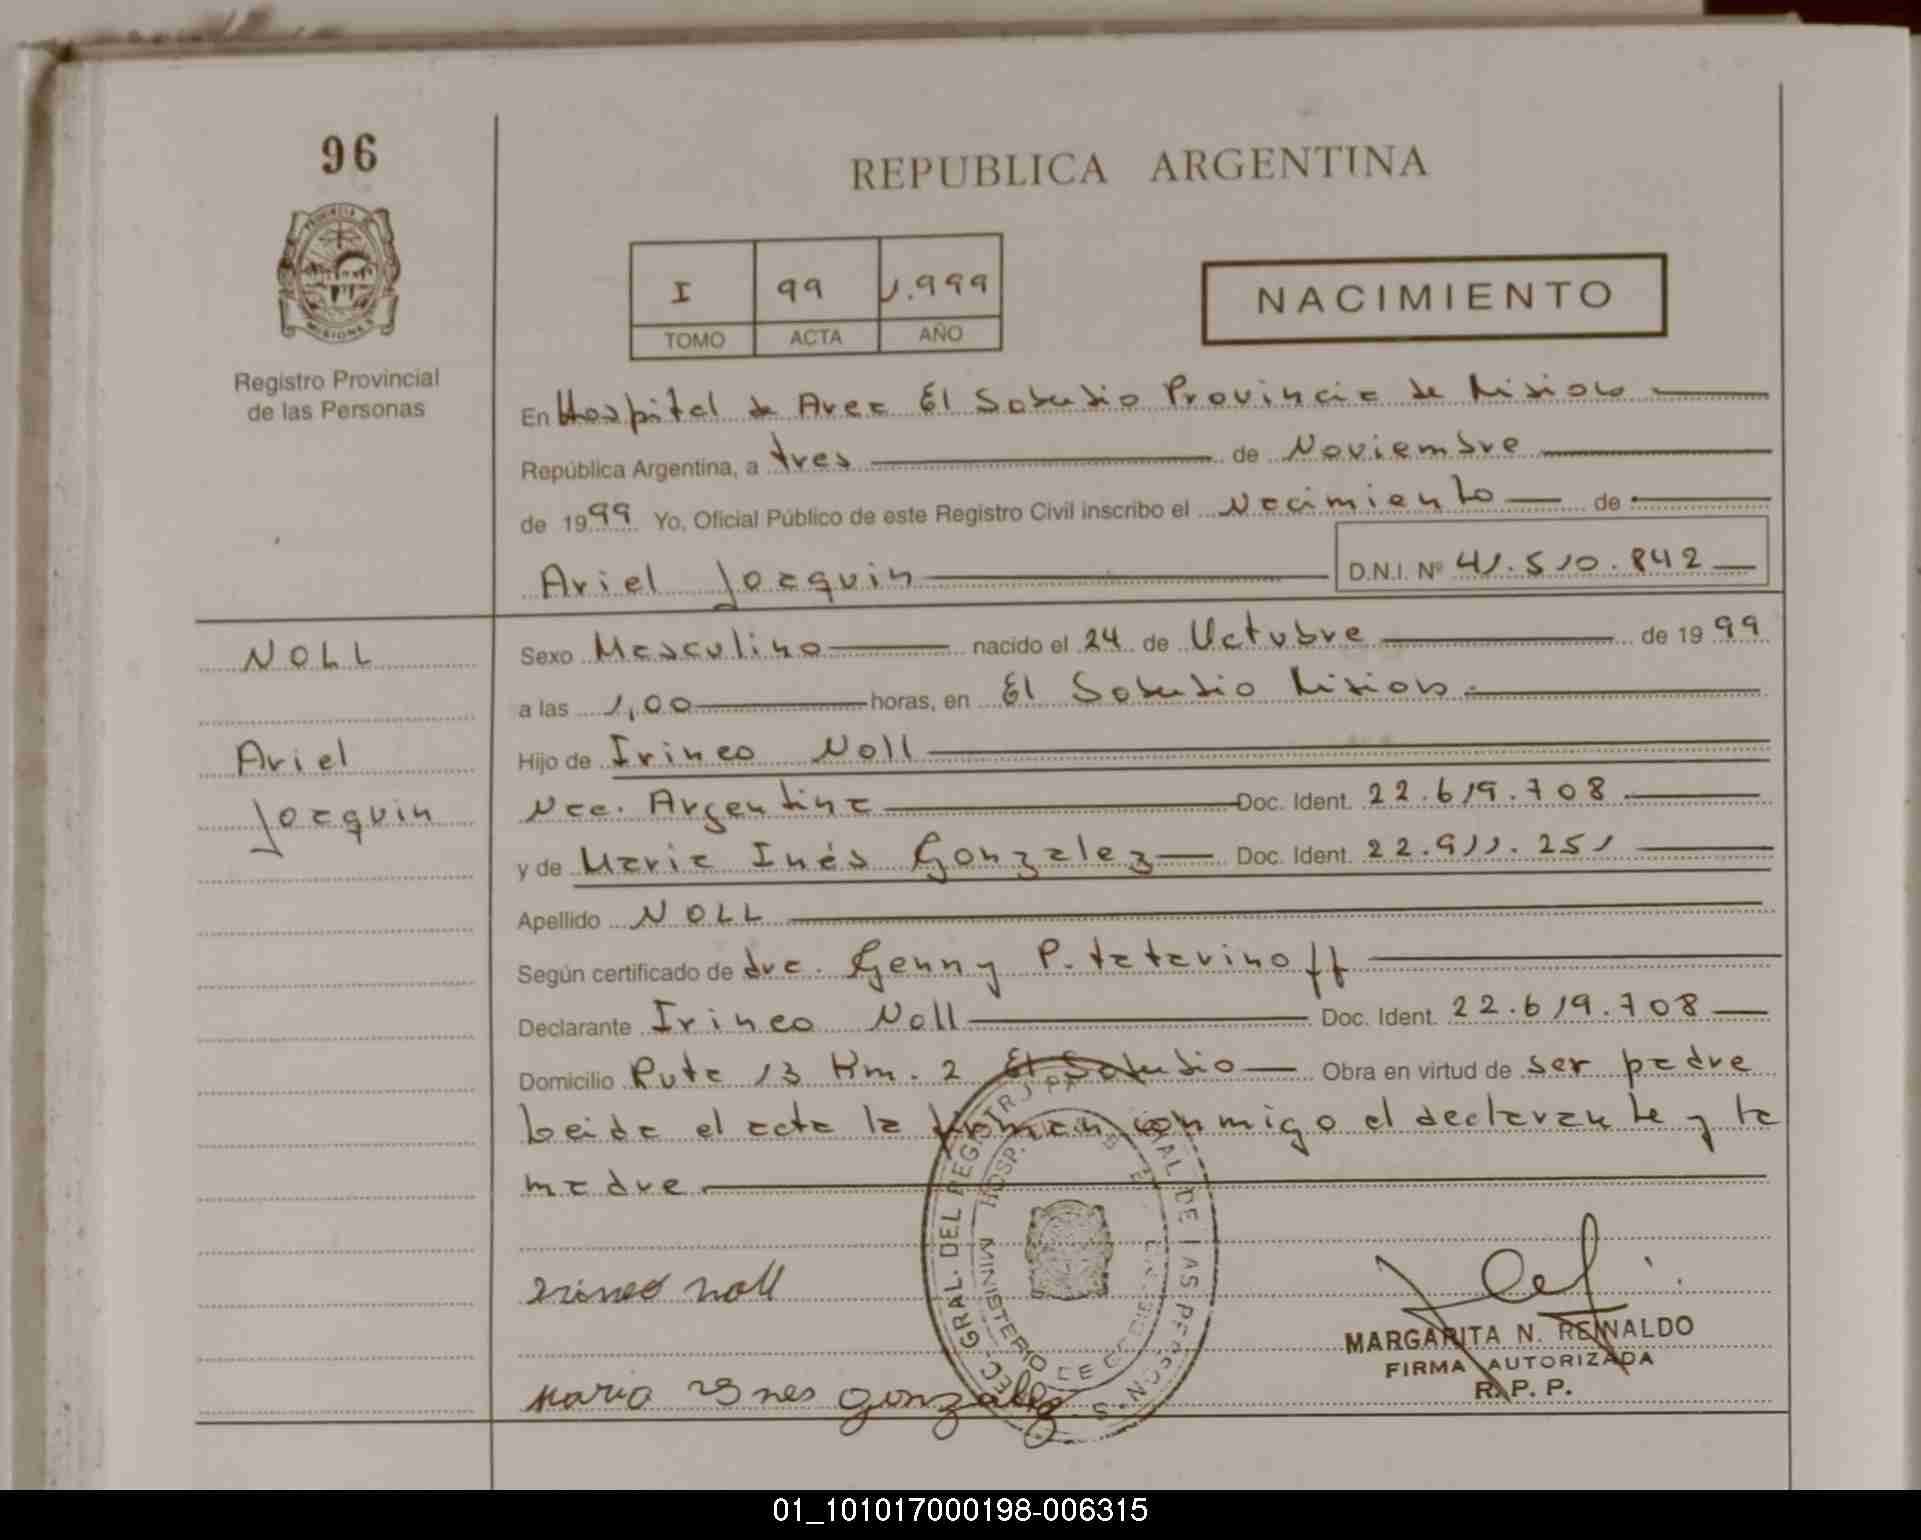 96
REPUBLICA ARGENTINA
PROVINCIA
MISIONES
I 99 1.999
TOMO ACTA AÑO
NACIMIENTO
Registro Provincial
de las Personas
En Hospital de Area El Soberbio Provincia de Misiones
República Argentina, a tres de Noviembre
de 1999 Yo, Oficial Público de este Registro Civil inscribo el Nacimiento de
Ariel Joaquin D.N.I. Nº 41.510.842
NOLL
Ariel
Joaquin
Sexo Masculino nacido el 24 de Octubre de 1999
a las 1,00 horas, en El Soberbio Misiones
Hijo de Irineo Noll
Nac. Argentina Doc. Ident. 22.619.708
y de Maria Inés Gonzalez Doc. Ident. 22.911.251
Apellido NOLL
Según certificado de dra. Genny P. tatarinoff
Declarante Irineo Noll Doc. Ident. 22.619.708
Domicilio Ruta 13 Km. 2 El Soberbio Obra en virtud de ser padre
leida el acta la firman conmigo el declarante y la
madre
irineo noll
maria ynes gonzalez
GRAL. DEL REGISTRO
DE LAS PERSONAS
MINISTERIO DE
HOSP.
MARGARITA N. REINALDO
FIRMA AUTORIZADA
R. P. P.
01_101017000198-006315